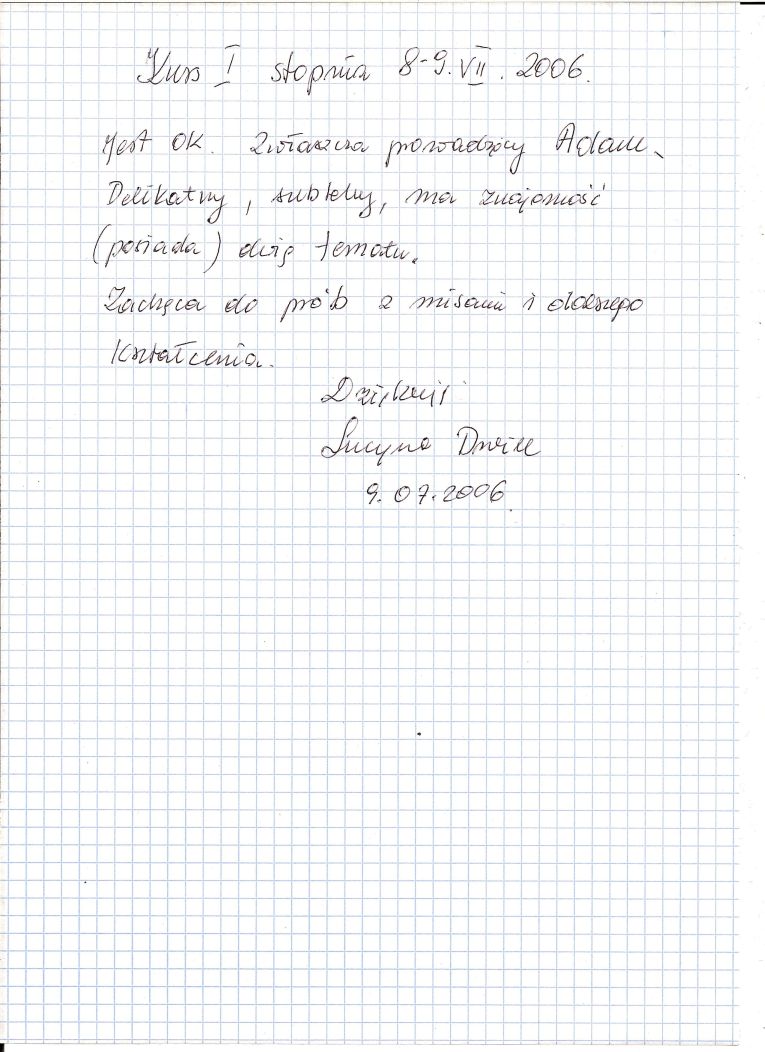 Kurs I stopnia 8-9.VII.2006.
Jest OK. Zwłaszcza prowadzący Adam.
Delikatny, subtelny, ma znajomość
(posiada) dużą tematu.
Zachęca do prób z misami i dalszego
kształcenia.
Dziękuję
Lucyna
9.07.2006